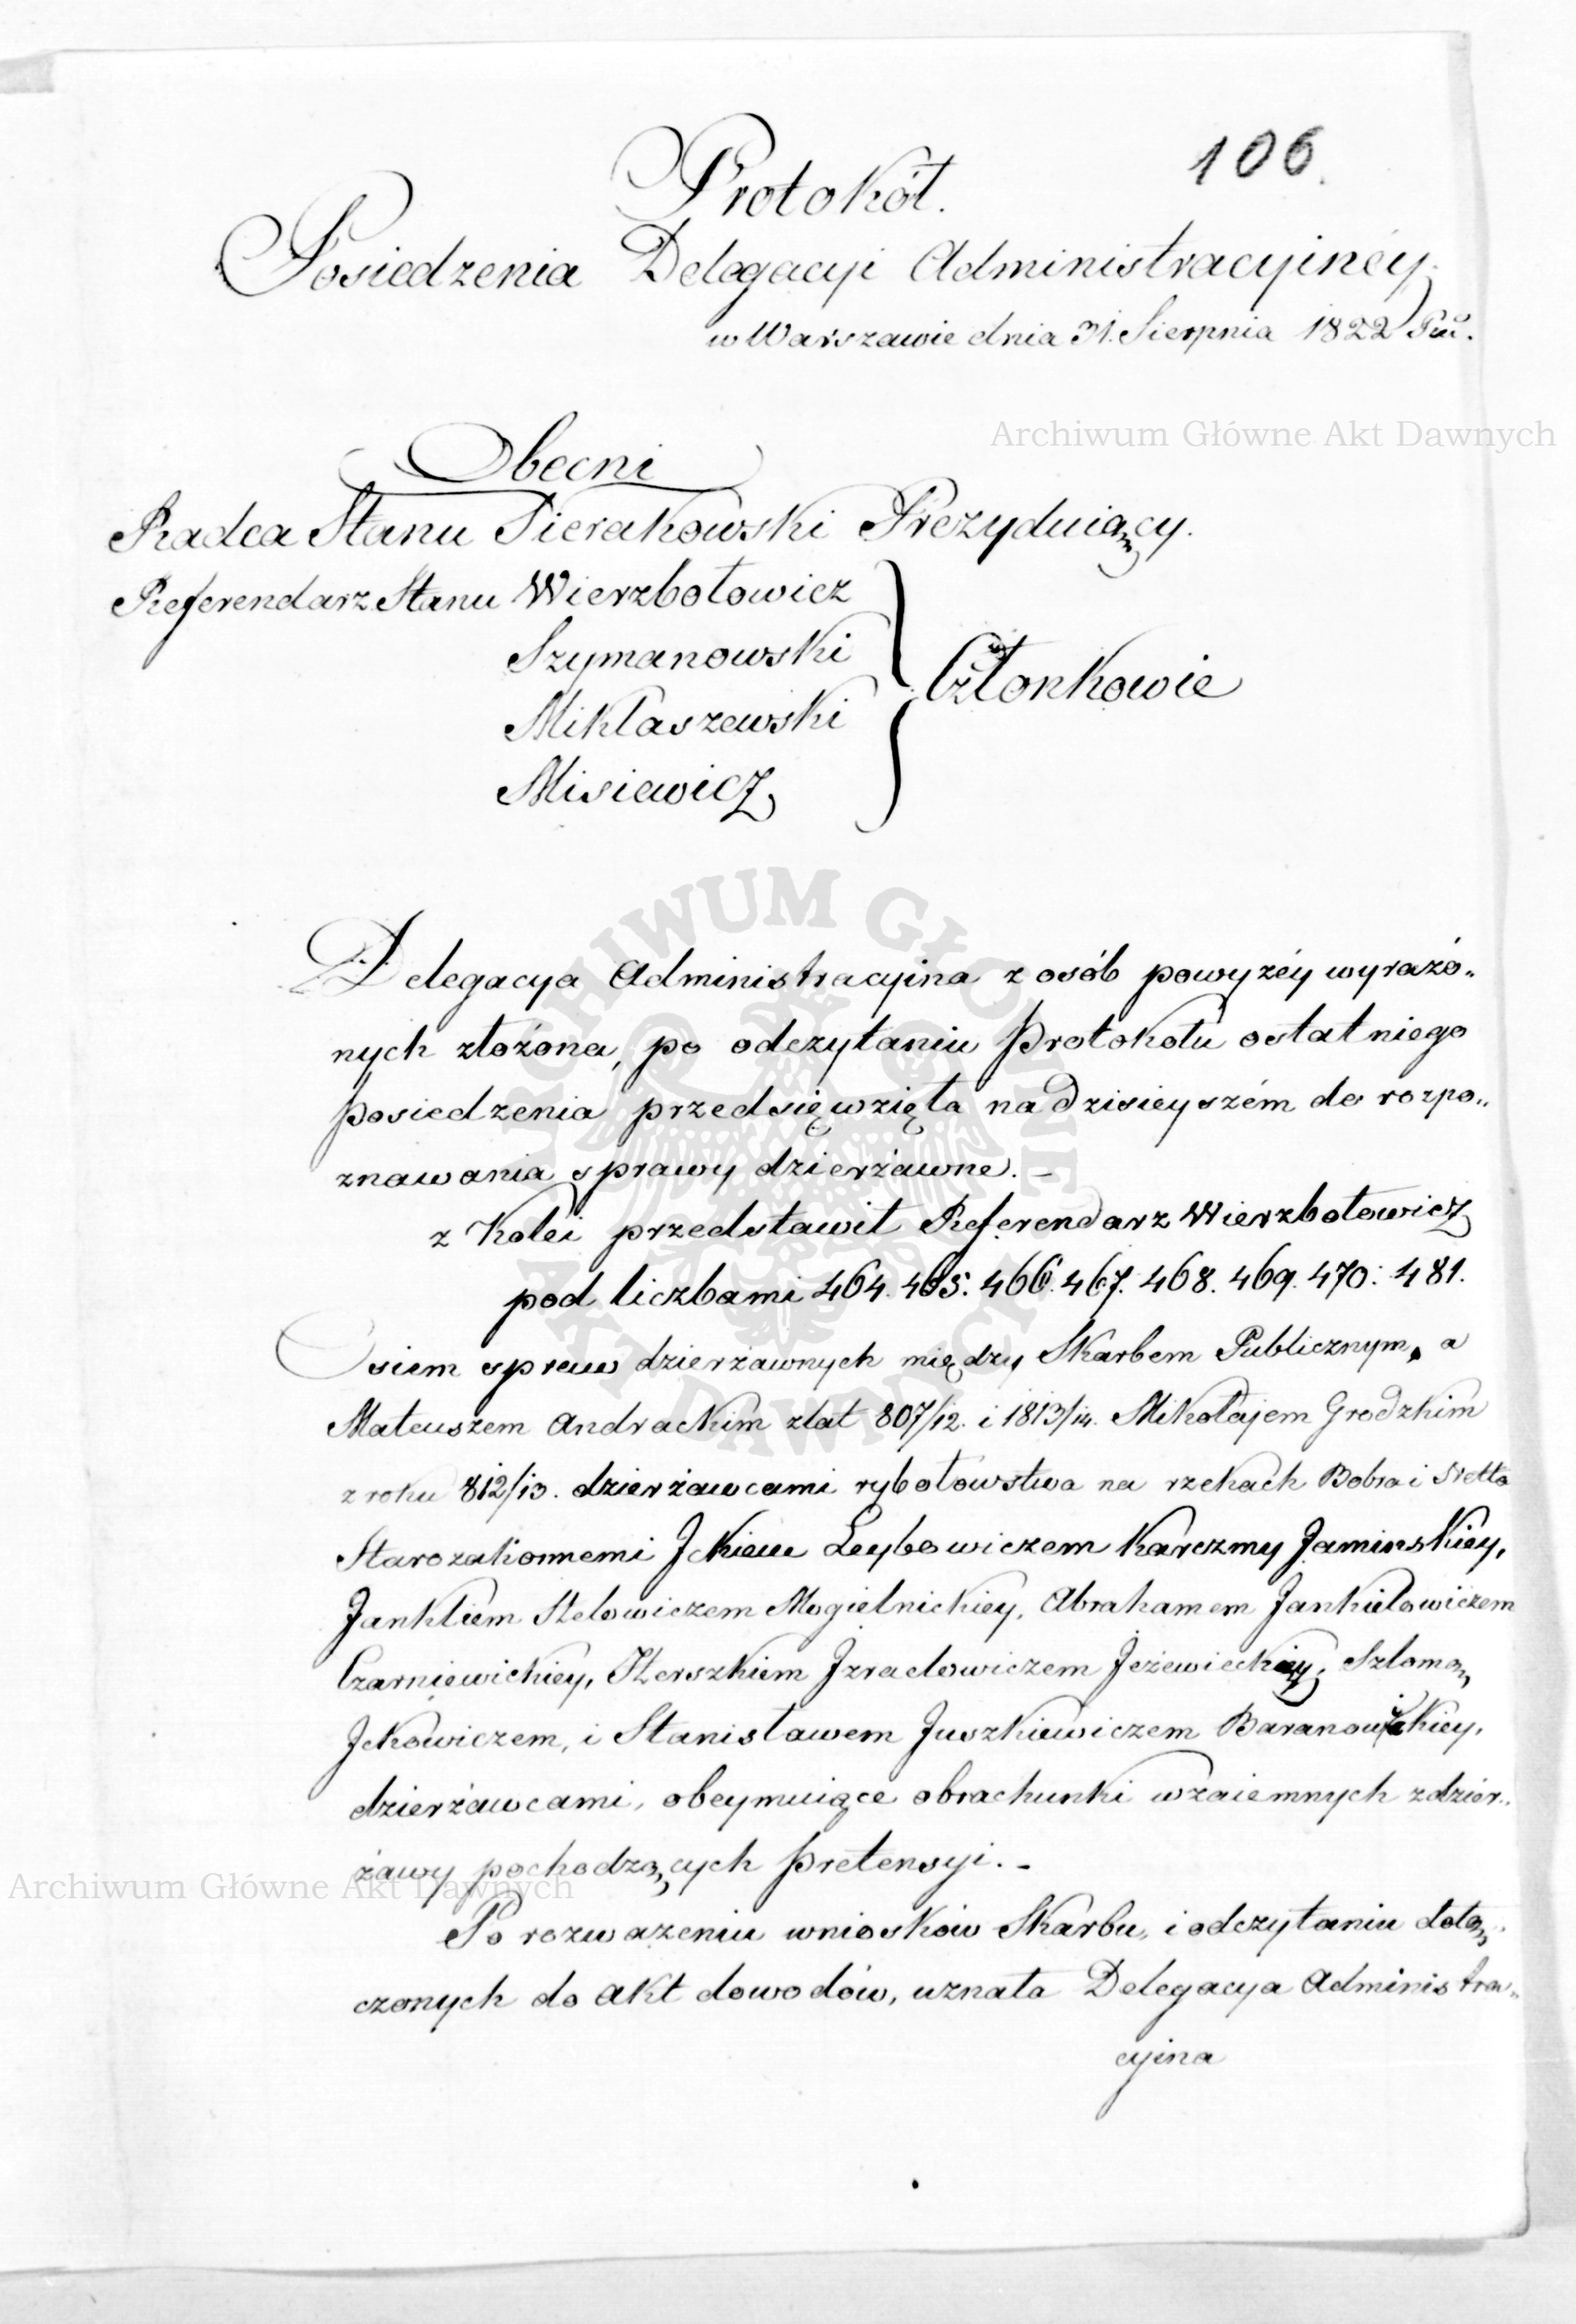 106.
Protokół.
Posiedzenia Delegacyi Administracyinéy.
w Warszawie dnia 31. Sierpnia 1822
Archiwum Główne Akt Dawnych
Obecni
Radca Stanu Sierakowski Prezyduiący.
Referendarz Stanu Wierzbołowicz
Szymanowski
Członkowie
Mikłaszewski
Misiewicz
ARCHIWUM GŁÓWNE AKT DAWNYCH
Delegacya Administracyina z osób powyżéy wyrażo„
nych złożona, po odczytaniu Protokołu ostatniego
Posiedzenia przedsięwzięła na dzisieyszém do rozpo„
znawania sprawy dzierżawne. –
z Kolei przedstawił Referendarz Wierzbołowicz
pod liczbami 464. 465. 466. 467. 468. 469. 470. 481.
Osiem spraw dzierżawnych między Skarbem Publicznym, a
Mateuszem Andrackim z lat 807/12. i 1813/14. Mikołajem Grodzkim
z roku 812/13. dzierżawcami rybołowstwa na rzekach Bobra i Netta
Starozakonnemi Jckiem Leybowiczem Karczmy Jaminskiey,
Jankliem Stelowiczem Mogielnickiey, Abrahamem Jankielowiczem
Czarniewickiey, Herszkiem Jzraelowiczem Jeżewieckiey, Szlomą
Jckowiczem, i Stanisławem Juszkiewiczem Baranowskiey,
dzierżawcami, obeymuiące obrachunki wzaiemnych z dzier„
żawy pochodzących Pretensyi. –
Archiwum Główne Akt Dawnych
Po rozważeniu wniosków Skarbu, i odczytaniu dołą„
czonych do akt dowodów, uznała Delegacya Administra„
cyina